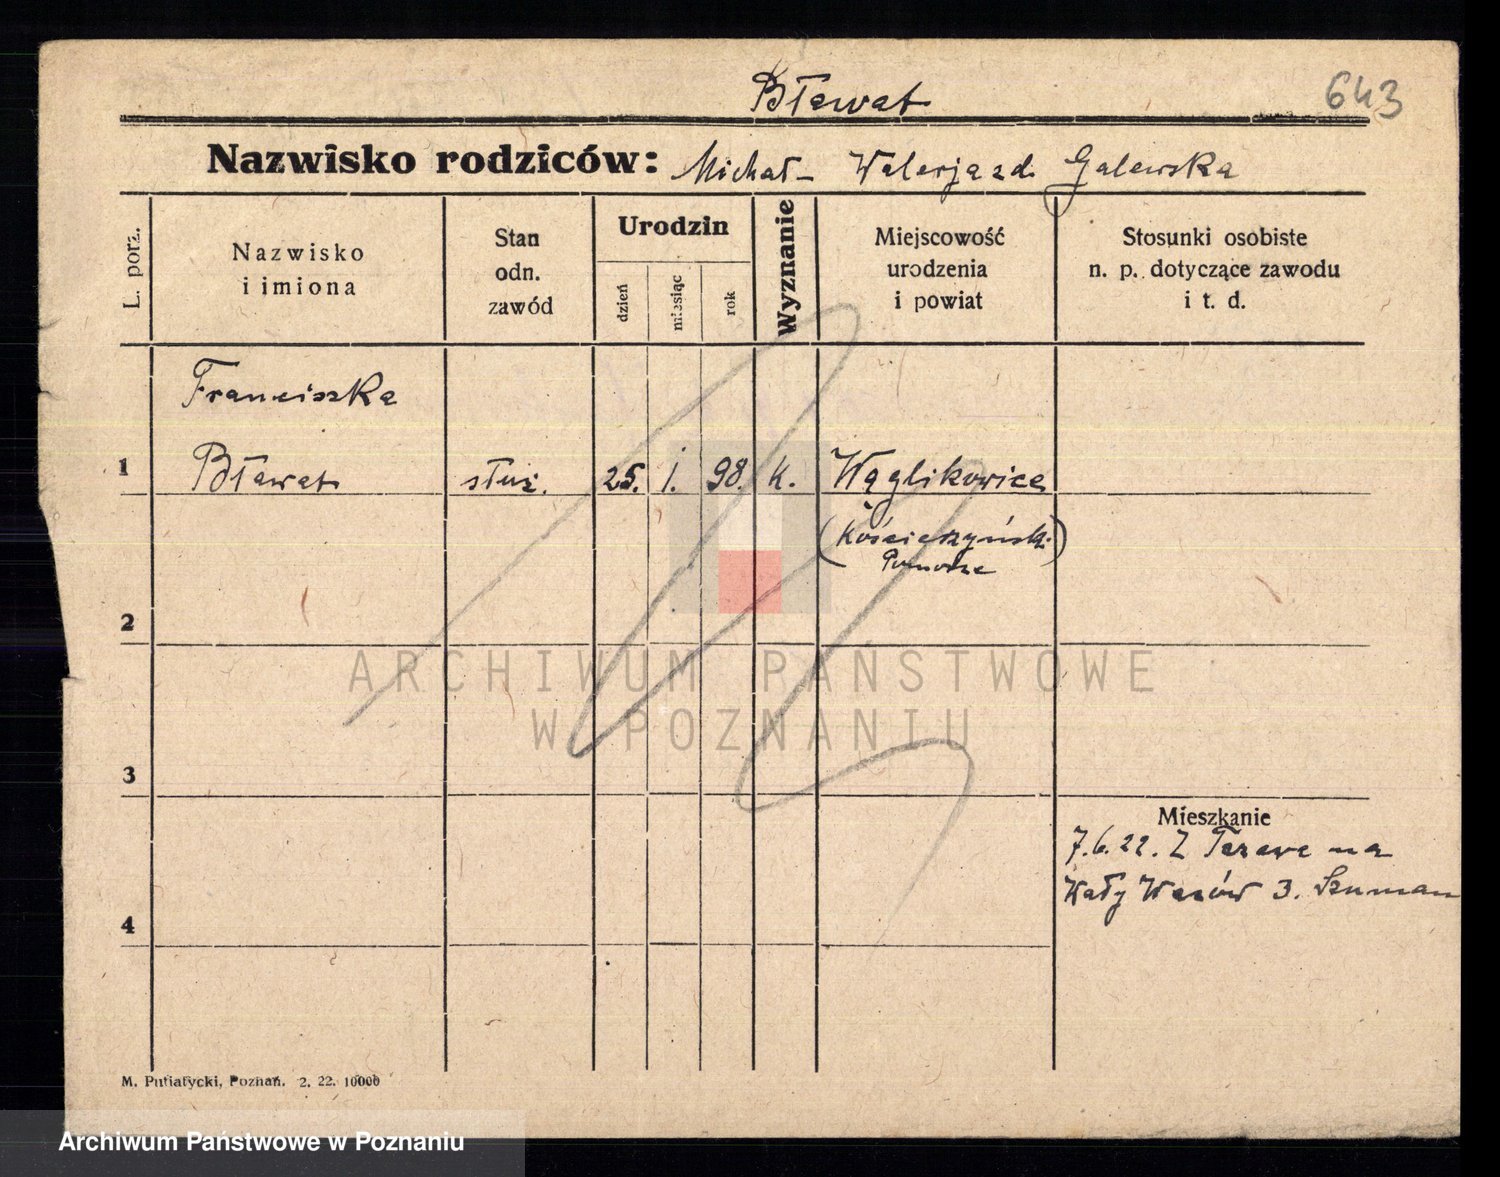 Bławat
643
Nazwisko rodziców: Michał - Walerja zd. Galewska
L. porz.
Nazwisko
i imiona
Stan
odn.
zawód
Urodzin
dzień
miesiąc
rok
Wyznanie
Miejscowość
urodzenia
i powiat
Stosunki osobiste
n. p. dotyczące zawodu
i t. d.
Franciszka
1 Bławat służ. 25. I. 98. k. Wąglikowice
(Kościerzyński)
Pomorze
2
3
Mieszkanie
7.6.22. Z Tczewa na
Wały Wazów 3. Szuman
4
M. Putiatycki, Poznań. 2. 22. 10000
ARCHIWUM PAŃSTWOWE
W POZNANIU
Archiwum Państwowe w Poznaniu